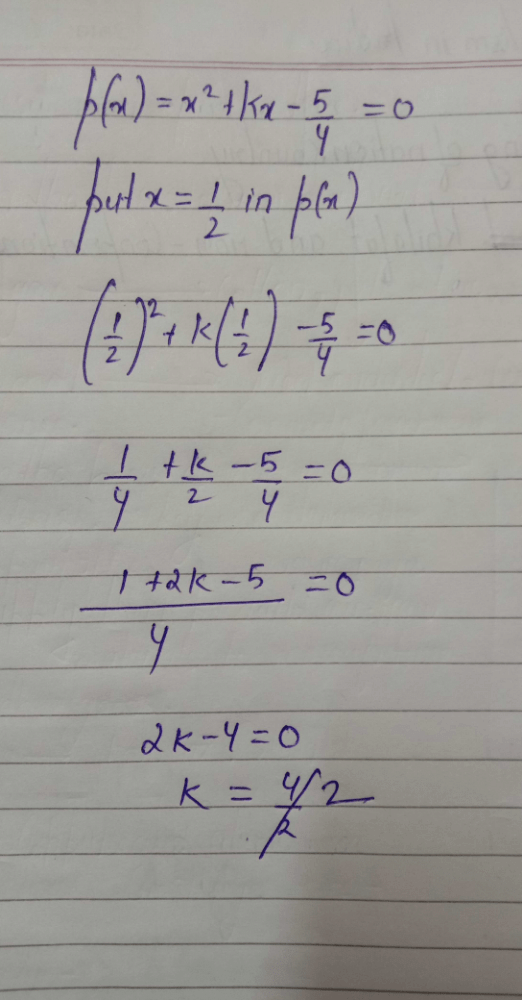 p(x) = x² + kx - 5/4 = 0
put x = 1/2 in p(x)
(1/2)² + k(1/2) - 5/4 = 0
1/4 + k/2 - 5/4 = 0
1 + 2k - 5 / 4 = 0
2k - 4 = 0
k = 4/2 2